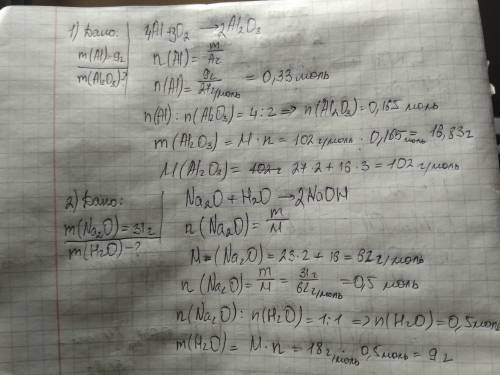 1) Дано:
m(Al)=9г
m(Al₂O₃)?
4Al+3O₂ → 2Al₂O₃
n(Al)= m/Ar
n(Al)= 9г/27г/моль = 0,33 моль
n(Al):n(Al₂O₃)=4:2 => n(Al₂O₃)=0,165 моль
m(Al₂O₃)= M·n = 102 г/моль · 0,165 моль = 16,83г
M(Al₂O₃)= 27·2+16·3=102 г/моль
2) Дано:
m(Na₂O)=31г
m(H₂O)-?
Na₂O+H₂O → 2NaOH
n(Na₂O)= m/M
M(Na₂O)=23·2+16=62г/моль
n(Na₂O)= m/M = 31г/62г/моль =0,5 моль
n(Na₂O):n(H₂O)=1:1 => n(H₂O)=0,5моль
m(H₂O)= M·n =18г/моль 0,5моль = 9г